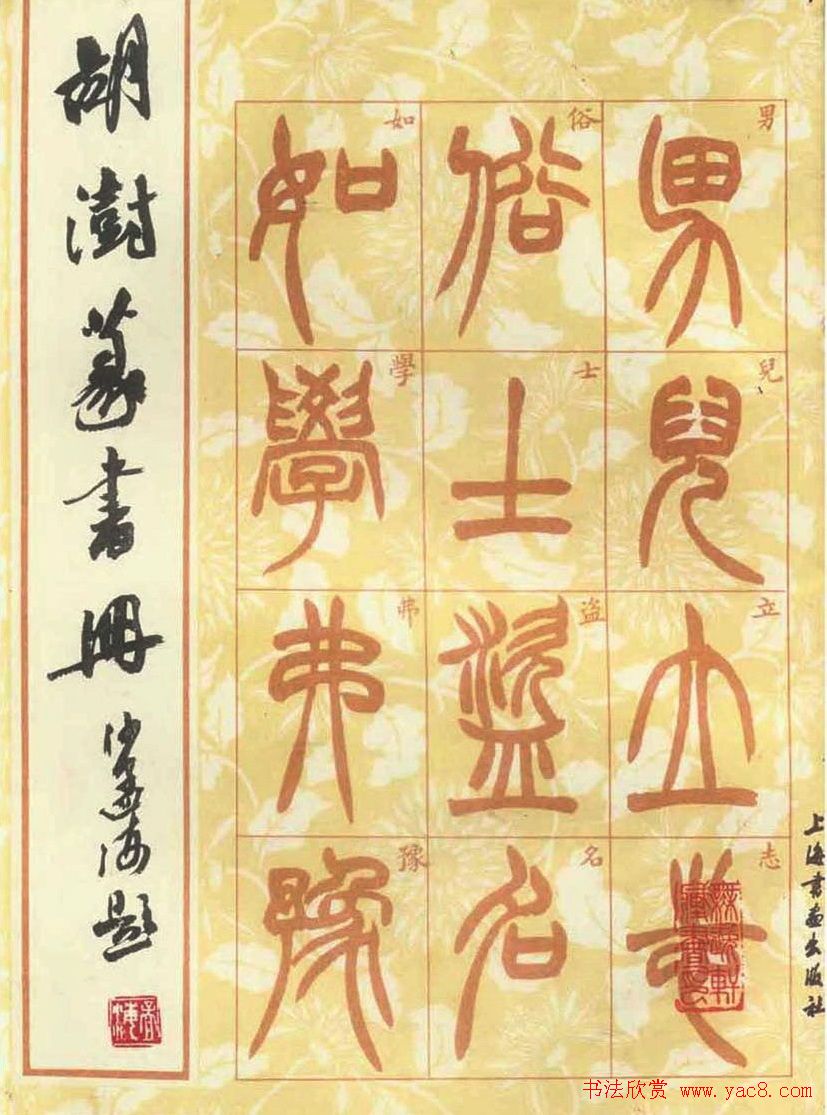 胡澍篆書冊
沙孟海題
男兒立志
男兒立志
俗士盜名
俗士盜名
如學弗豫
如學弗豫
上海書画出版社
书法欣赏 www.yac8.com